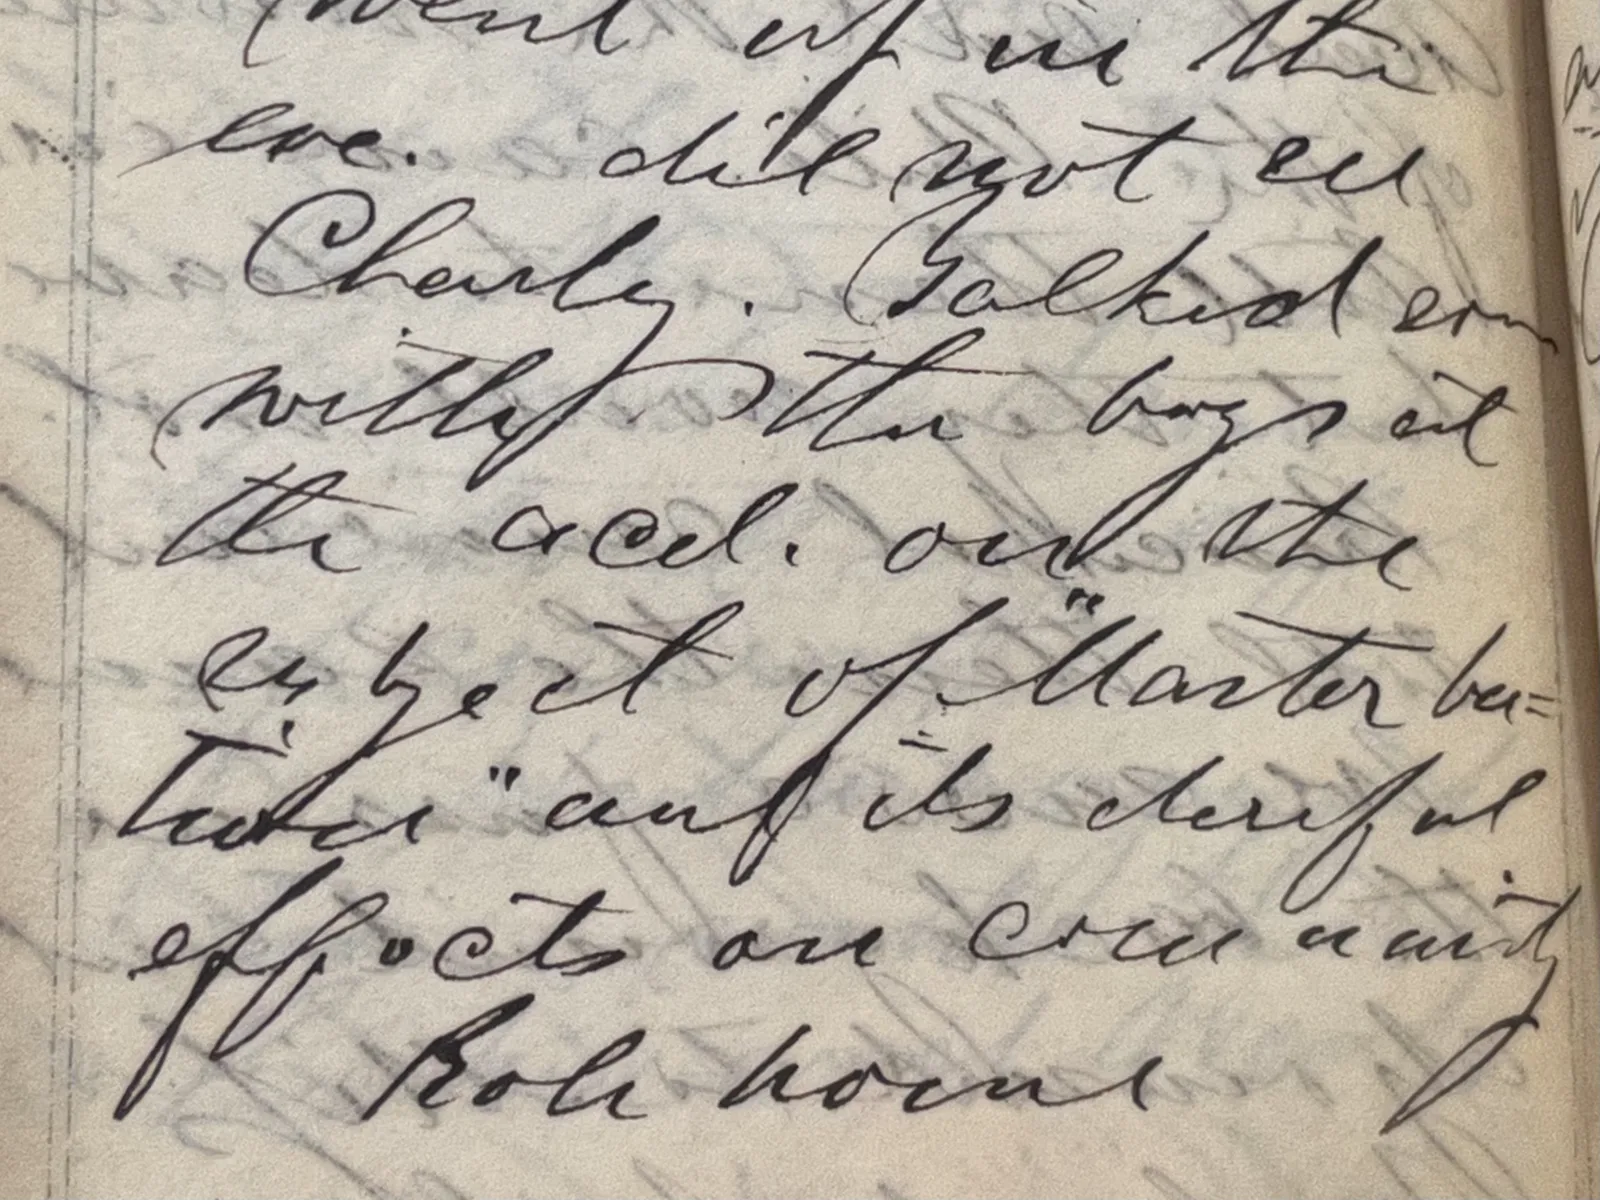 Went up in the
eve. did not see
Charly. Talked som
with the boys at
the acd. on the
subject of "Master ba=
tion" and its direful
effects on community
Rode home